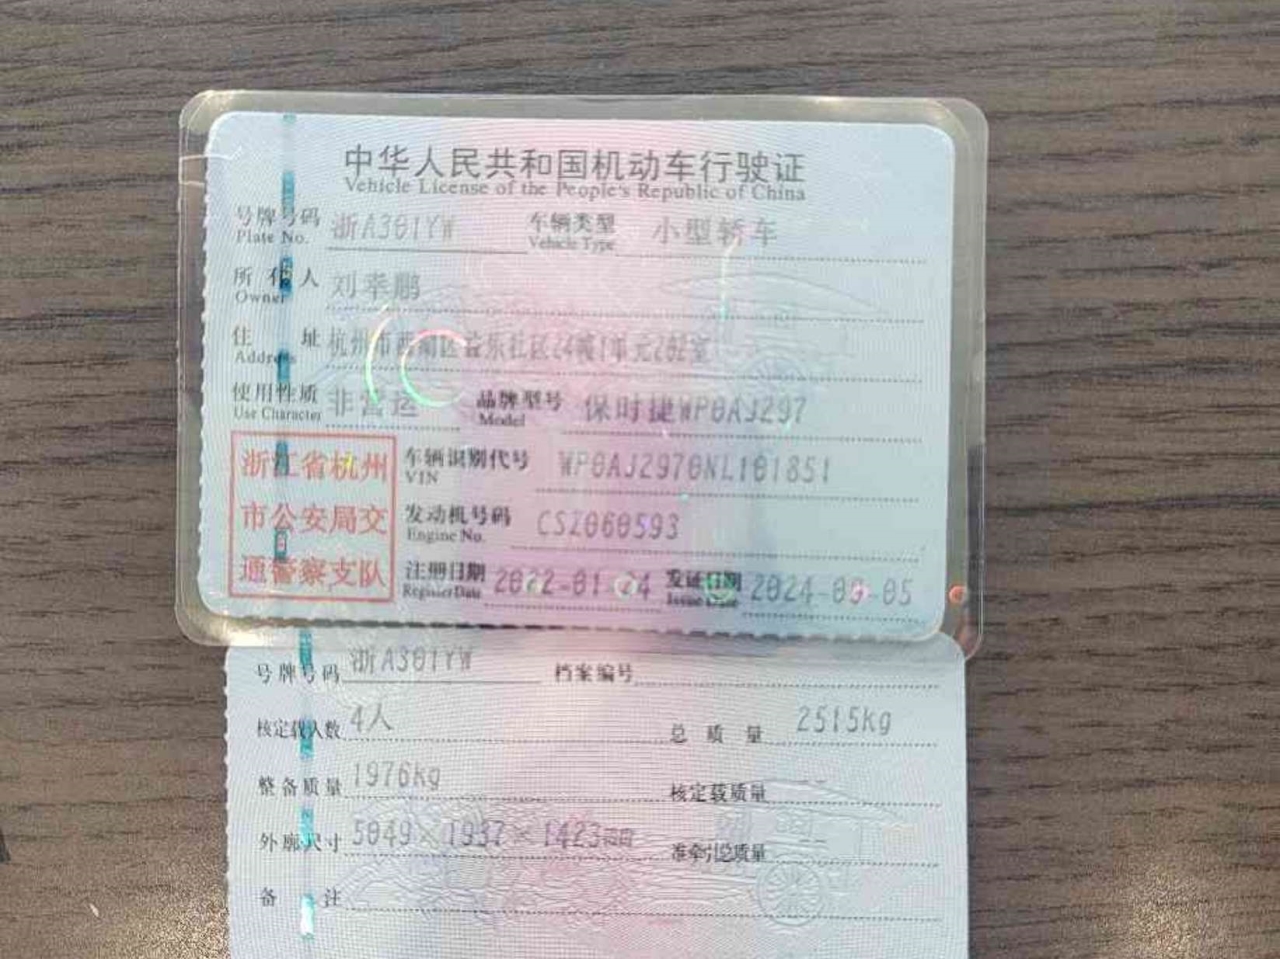 中华人民共和国机动车行驶证
Vehicle License of the People's Republic of China
号牌号码 浙A301YW 车辆类型 小型轿车
Plate No. Vehicle Type
所有人 刘幸鹏
Owner
住址 杭州市西湖区益乐社区24幢1单元202室
Address
使用性质 非营运 品牌型号 保时捷WP0AJ297
Use Character Model
浙江省杭州
市公安局交
通警察支队
车辆识别代号 WP0AJ2970NL101851
VIN
发动机号码 CSZ060593
Engine No.
注册日期 2022-01-24 发证日期 2024-09-05
Register Date Issue Date
号牌号码 浙A301YW 档案编号
核定载人数 4人 总质量 2515kg
整备质量 1976kg 核定载质量 --
外廓尺寸 5049×1937×1423mm 准牵引总质量 --
备注